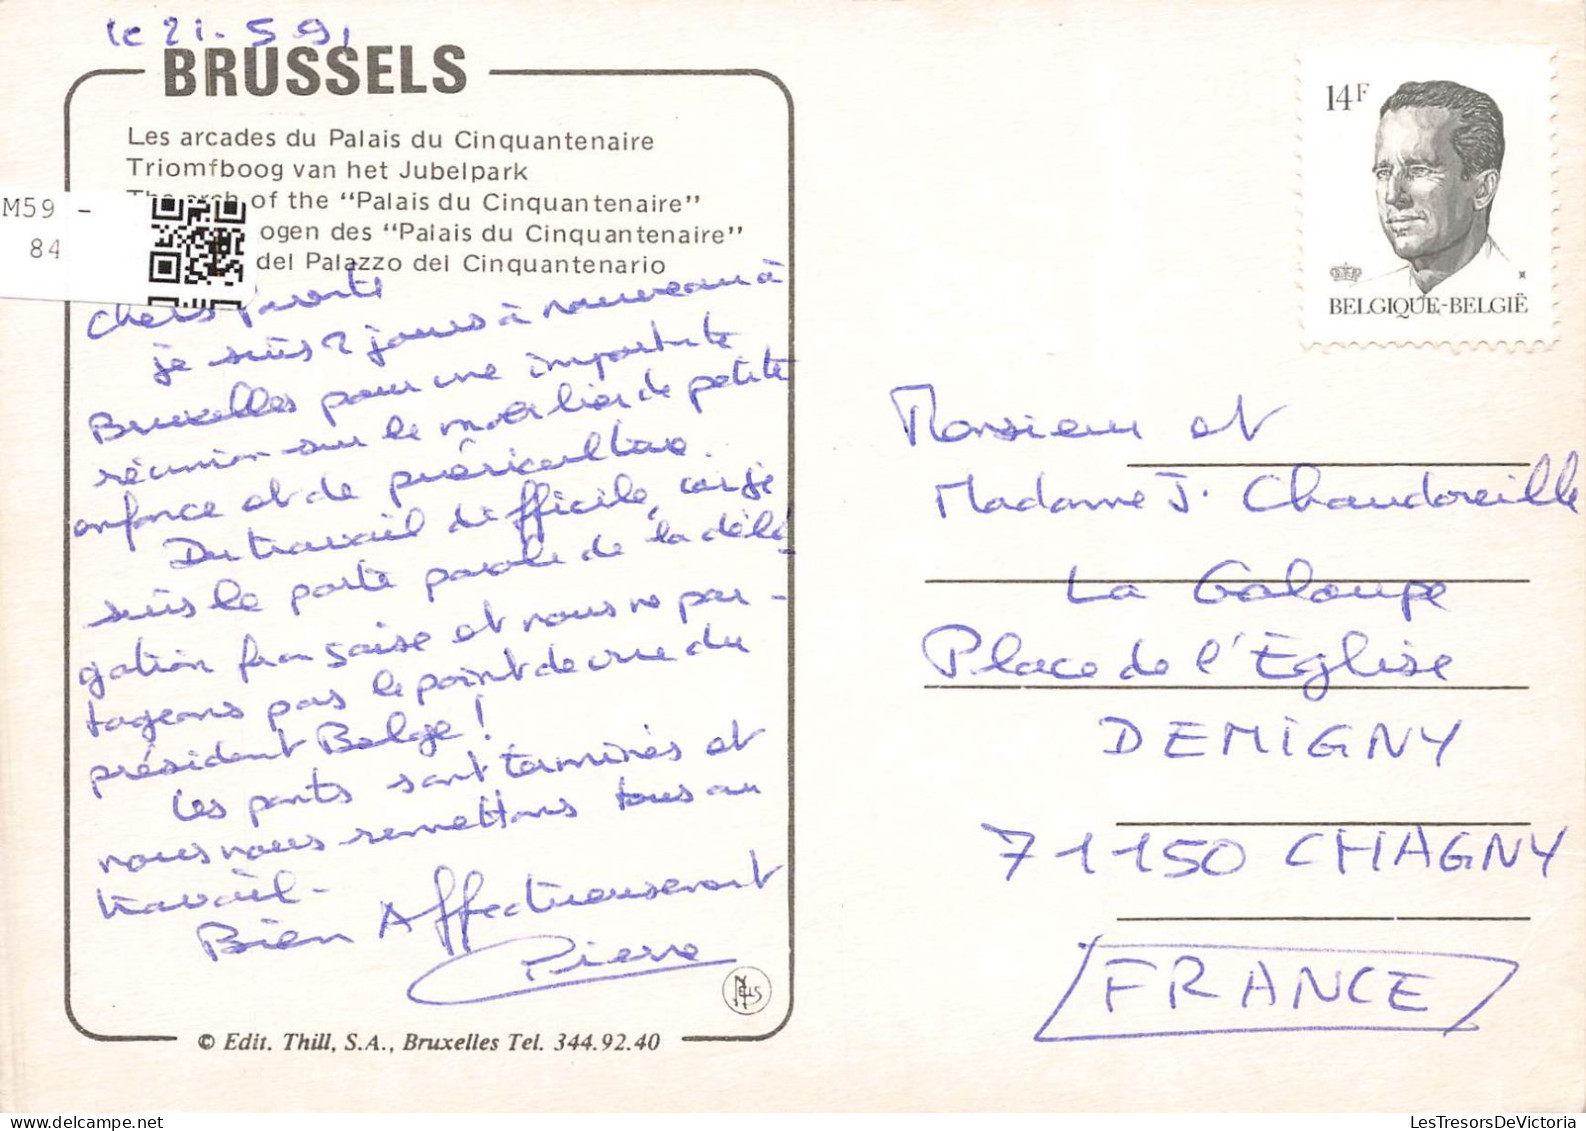 le 21. 5 91
BRUSSELS
Les arcades du Palais du Cinquantenaire
Triomfboog van het Jubelpark
The arch of the “Palais du Cinquantenaire”
ogen des “Palais du Cinquantenaire”
del Palazzo del Cinquantenario
M59 -
84
Chers
je suis 2 jours à nouveau à
Bruxelles pour une importante
réunion sur le mobilier de petite
enfance et de puériculture.
Du travail difficile, car je
suis le porte parole de la délé-
gation française et nous ne par-
tageons pas le point de vue du
président Belge !
Les ponts sont terminés et
nous nous remettons tous au
travail.
Bien Affectueusement
Pierre
NELLS
© Edit. Thill, S.A., Bruxelles Tel. 344.92.40
14F
BELGIQUE-BELGIË
Monsieur et
Madame J. Chaudoreille
La Galoupe
Place de l'Eglise
DEMIGNY
71150 CHAGNY
FRANCE
LesTresorsDeVictoria.com